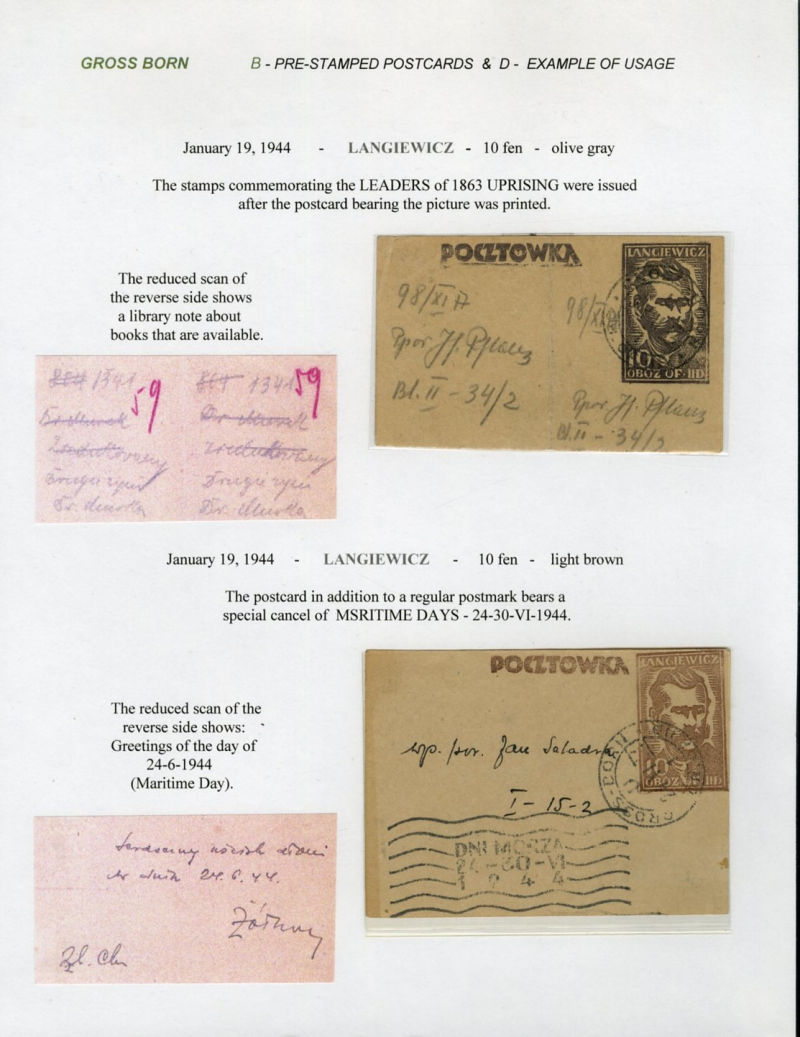 GROSS BORN B - PRE-STAMPED POSTCARDS & D - EXAMPLE OF USAGE
January 19, 1944 - LANGIEWICZ - 10 fen - olive gray
The stamps commemorating the LEADERS of 1863 UPRISING were issued
after the postcard bearing the picture was printed.
The reduced scan of
the reverse side shows
a library note about
books that are available.
1341 59
1341 59
POCZTOWKA
LANGIEWICZ
10
OBOZ OF. IID
98/XI A
98/XI
Ppor J. Pflanz
Bl. II - 34/2
Ppor J. Pflanz
Bl. II - 34/2
January 19, 1944 - LANGIEWICZ - 10 fen - light brown
The postcard in addition to a regular postmark bears a
special cancel of MSRITIME DAYS - 24-30-VI-1944.
The reduced scan of the
reverse side shows:
Greetings of the day of
24-6-1944
(Maritime Day).
Serdeczny uścisk dłoni
w dniu 24.6.44.
POCZTOWKA
LANGIEWICZ
10
OBOZ OF. IID
GROSS-BORN
wp. por. Jan
I - 15-2
DNI MORZA
24-30-VI
1944